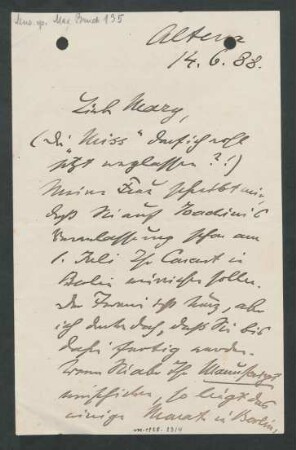 Mus. ep. Max Bruch 195
Altena
14. 6. 88.
Liebe Mary,
(Die "Miss" darf ich wohl
jetzt weglassen?!)
Meine Frau schreibt mir,
daß Sie auf Joachim's
Veranlassung schon am
1. Juli Ihr Concert in
Berlin einreichen sollen.
Der Termin ist kurz, aber
ich denke doch, daß Sie bis
dahin fertig werden.
Wenn Sie aber Ihr Manuskript
einschicken, so liegt das
einige Monate in Berlin,